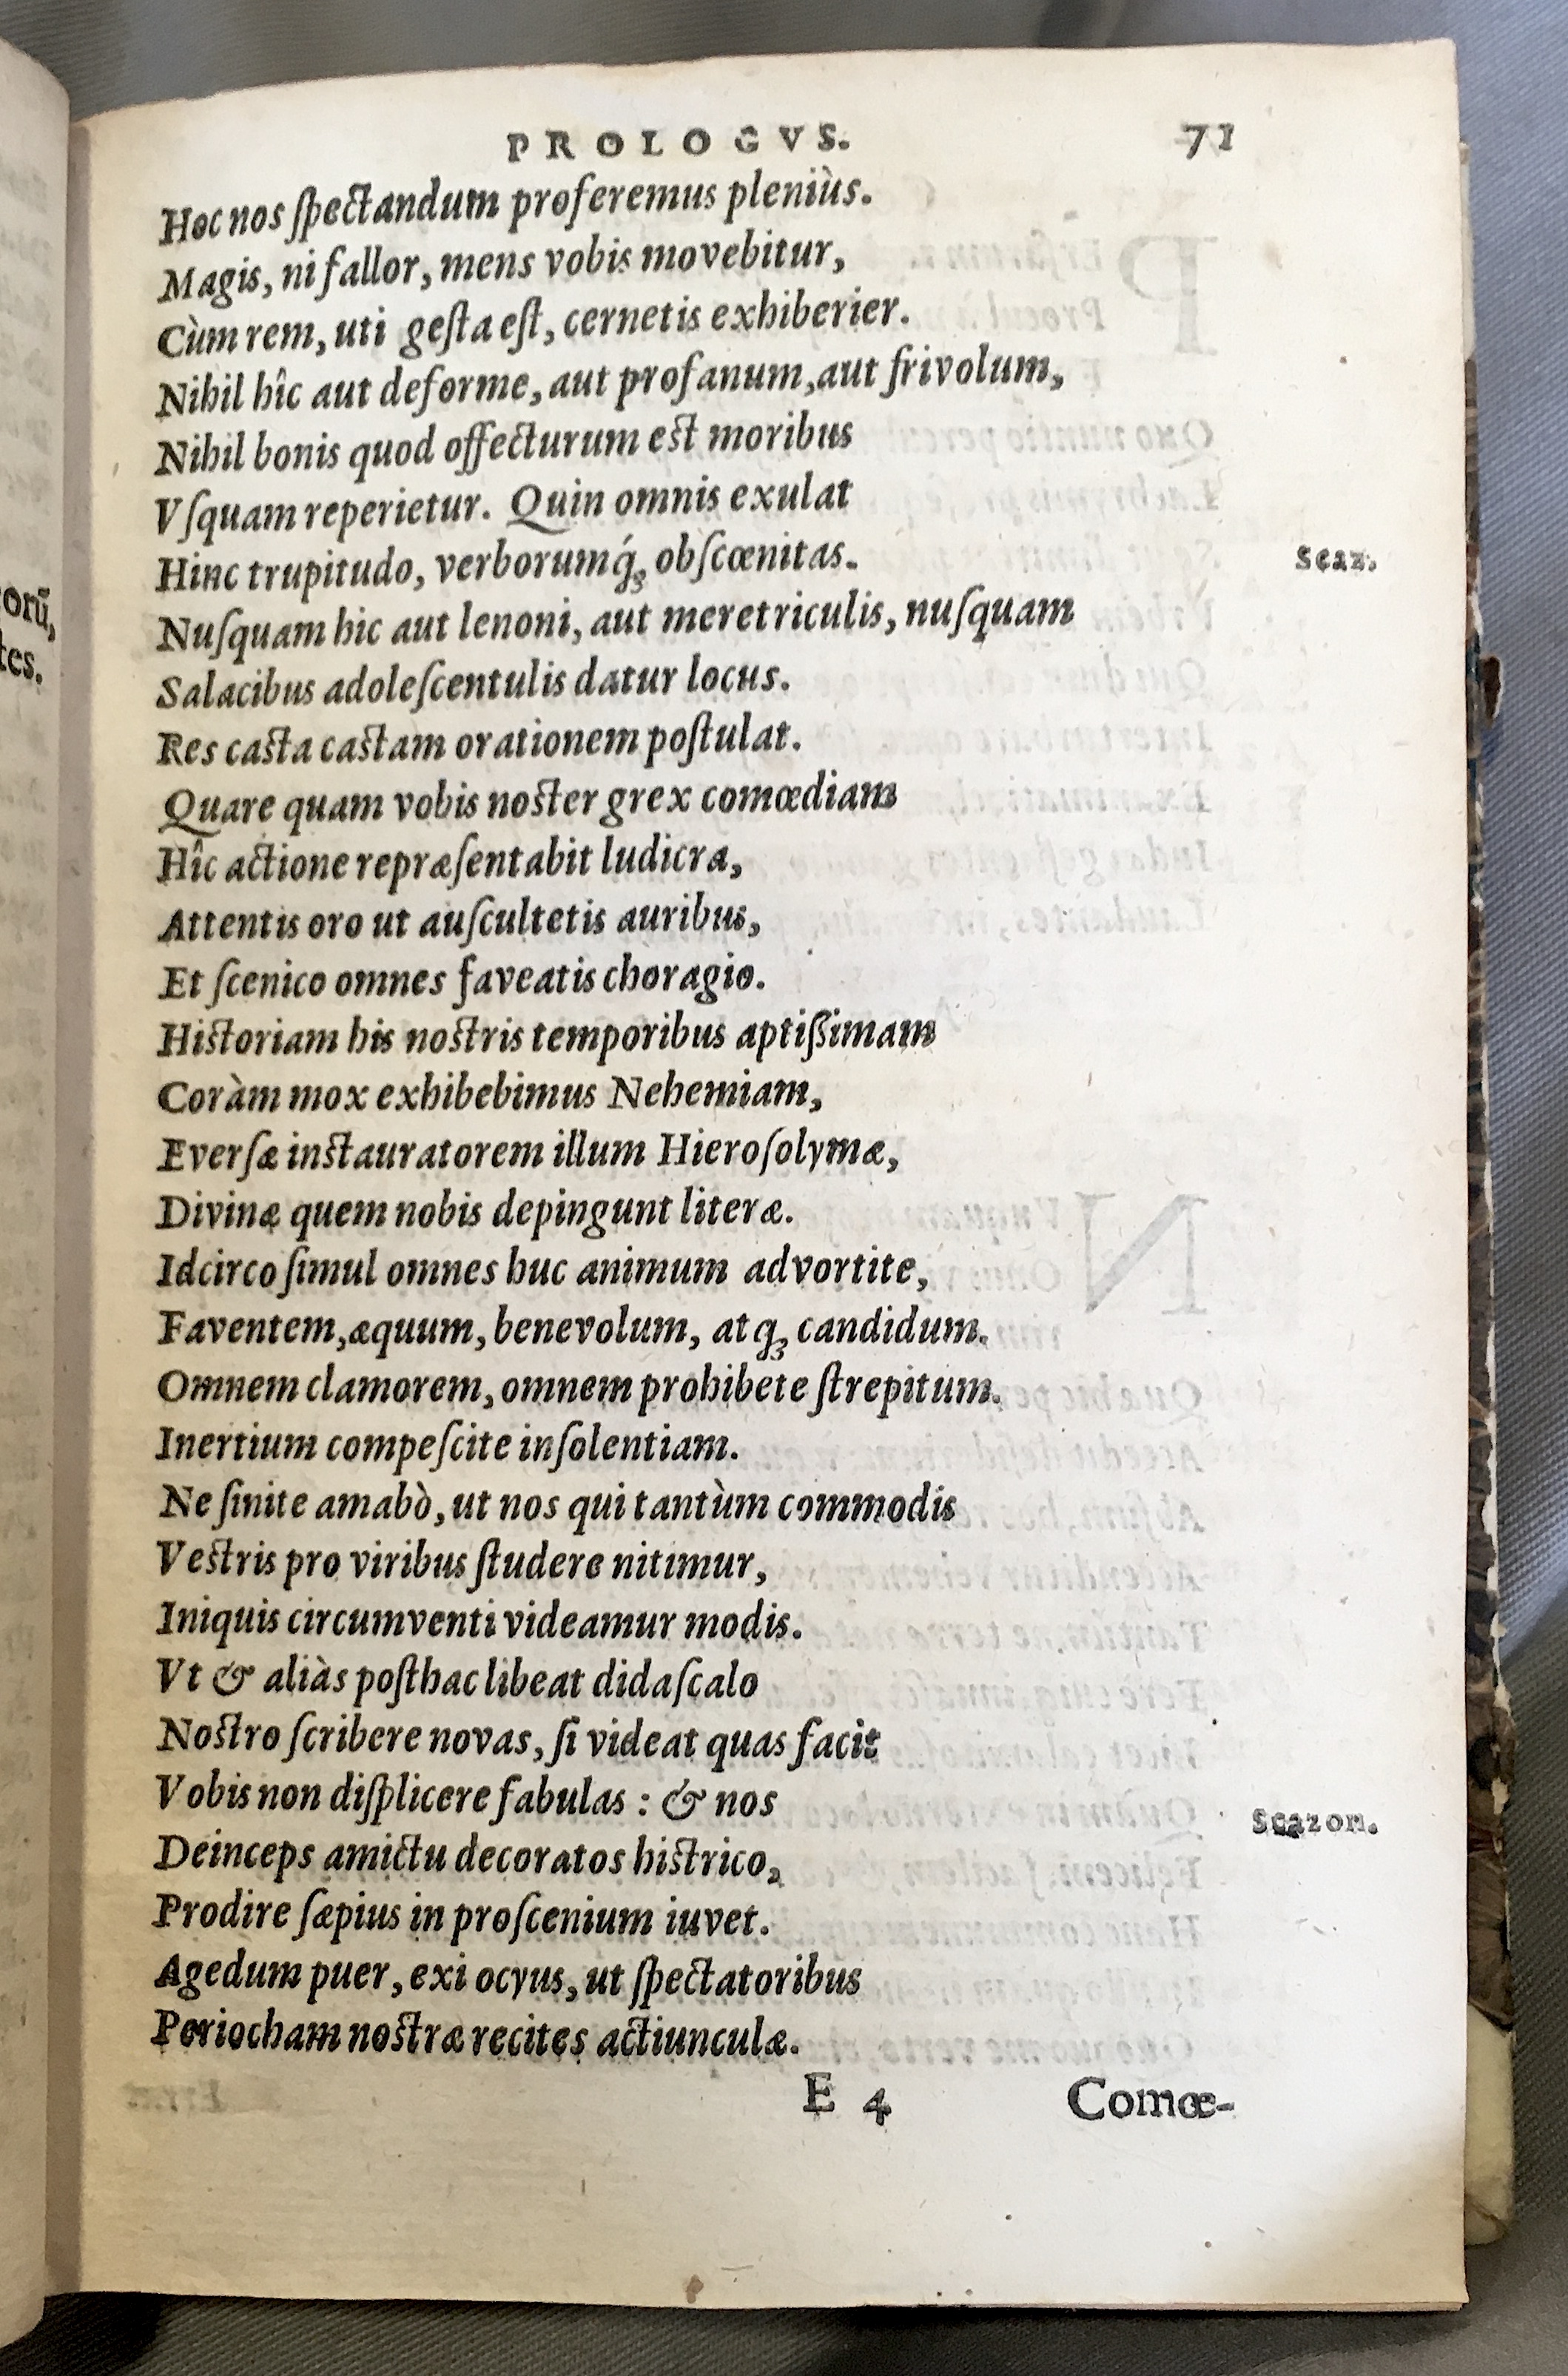 PROLOGVS. 71
Hoc nos ſpectandum proferemus pleniùs.
Magis, ni fallor, mens vobis movebitur,
Cùm rem, uti geſta eſt, cernetis exhiberier.
Nihil hîc aut deforme, aut profanum, aut frivolum,
Nihil bonis quod offecturum est moribus
Vſquam reperietur. Quin omnis exulat
Hinc trupitudo, verborumq́ꝫ obſcœnitas. Scaz.
Nuſquam hic aut lenoni, aut meretriculis, nuſquam
Salacibus adoleſcentulis datur locus.
Res casta castam orationem poſtulat.
Quare quam vobis noster grex comœdiam
Hîc actione repræſentabit ludicra,
Attentis oro ut auſcultetis auribus,
Et ſcenico omnes faveatis choragio.
Historiam his nostris temporibus aptiſſimam
Coràm mox exhibebimus Nehemiam,
Everſæ instauratorem illum Hieroſolymæ,
Divinæ quem nobis depingunt literæ.
Idcirco ſimul omnes huc animum advortite,
Faventem, æquum, benevolum, atqꝫ candidum.
Omnem clamorem, omnem prohibete ſtrepitum.
Inertium compeſcite inſolentiam.
Ne ſinite amabò, ut nos qui tantùm commodis
Vestris pro viribus ſtudere nitimur,
Iniquis circumventi videamur modis.
Vt & aliàs poſthac libeat didaſcalo
Nostro ſcribere novas, ſi videat quas facit
Vobis non diſplicere fabulas : & nos Scazon.
Deinceps amictu decoratos histrico,
Prodire ſæpius in proſcenium iuvet.
Agedum puer, exi ocyus, ut ſpectatoribus
Periocham nostræ recites actiunculæ.
E 4 Comœ-
orũ,
tes.